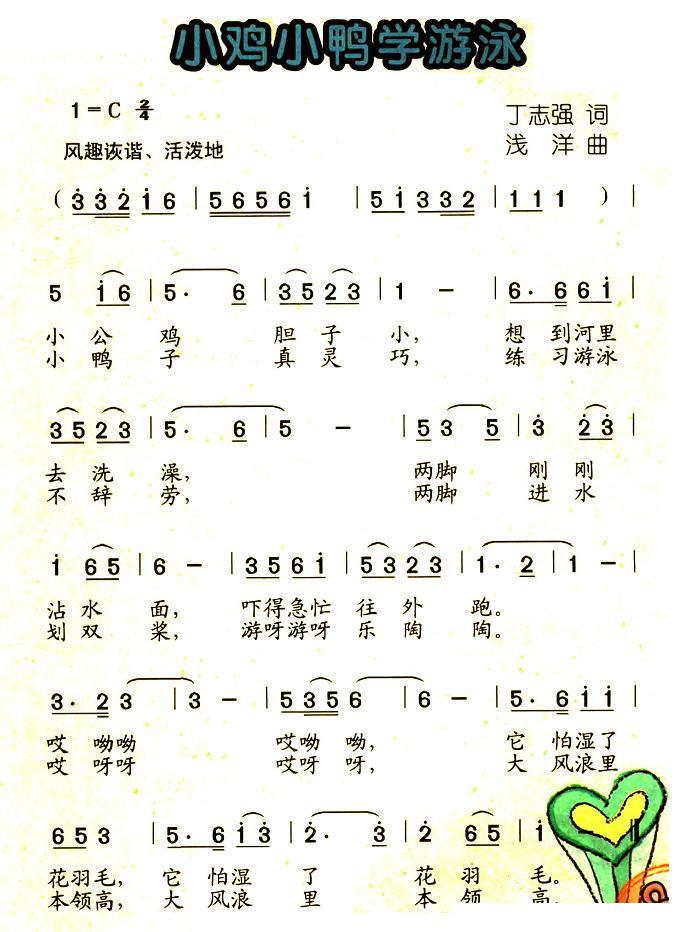 小鸡小鸭学游泳
1=C 2/4
丁志强 词
风趣诙谐、活泼地
浅 洋 曲
( 3̇ 3̇ 2̇ 1̇ 6 | 5 6 5 6 1̇ | 5 1̇ 3 3 2 | 1 1 1 ) |
5 1̇ 6 | 5· 6 | 3 5 2 3 | 1 - | 6· 6 6 1̇ |
小 公 鸡 胆 子 小, 想 到河里
小 鸭 子 真 灵 巧, 练 习游泳
3 5 2̇ 3̇ | 5· 6 | 5 - | 5 3 5 | 3̇ 2̇ 3̇ |
去 洗 澡, 两脚 刚 刚
不 辞 劳, 两脚 进 水
1̇ 6 5 | 6 - | 3 5 6 1̇ | 5 3 2 3 | 1· 2 | 1 - |
沾 水 面, 吓得急忙 往 外 跑。
划 双 桨, 游呀游呀 乐 陶 陶。
3· 2 3 | 3 - | 5 3 5 6 | 6 - | 5· 6 1̇ 1̇ |
哎 呦呦 哎呦 呦, 它 怕湿了
哎 呀呀 哎呀 呀, 大 风浪里
6 5 3 | 5· 6 1̇ 3̇ | 2̇· 3̇ | 2̇ 6 5 | 1̇
花羽毛, 它 怕湿 了 花 羽 毛。
本领高, 大 风浪 里 本 领 高。